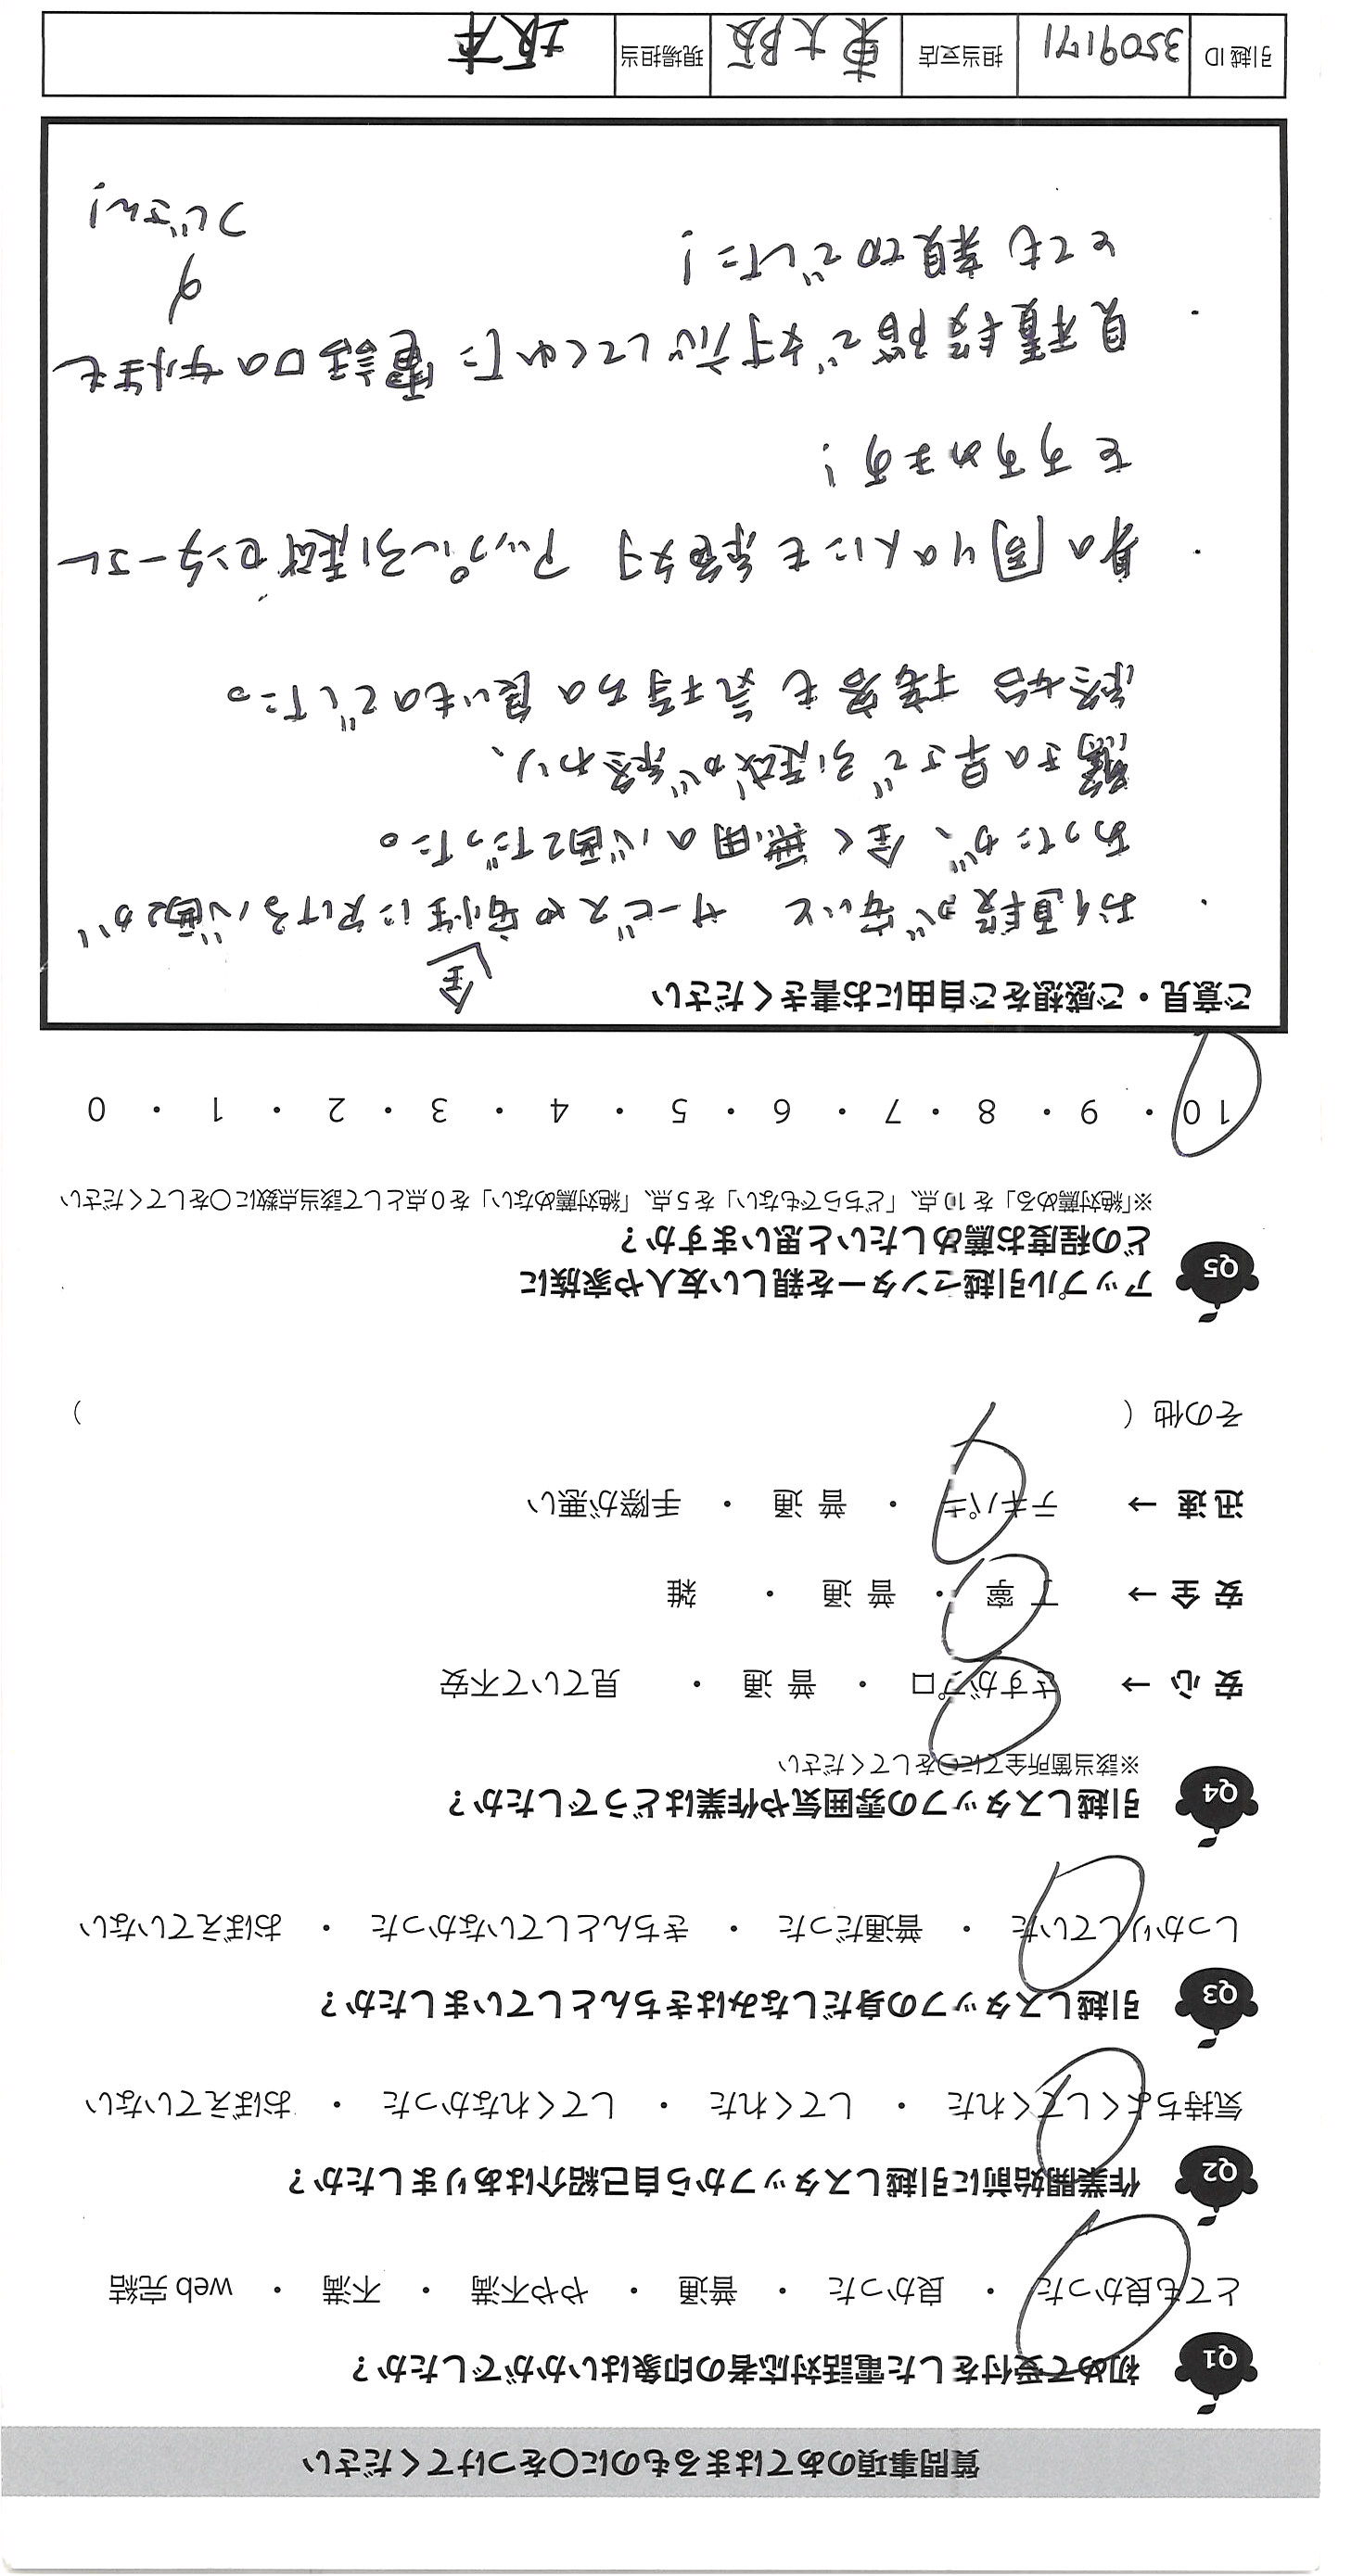 質問事項のあてはまるものに○をつけてください
Q1 初めて受付をした電話対応者の印象はいかがでしたか？
とても良かった ・ 良かった ・ 普通 ・ やや不満 ・ 不満 ・ web 完結
Q2 作業開始前に引越しスタッフから自己紹介はありましたか？
気持ちよくしてくれた ・ してくれた ・ してくれなかった ・ おぼえていない
Q3 引越しスタッフの身だしなみはきちんとしていましたか？
しっかりしていた ・ 普通だった ・ きちんとしていなかった ・ おぼえていない
Q4 引越しスタッフの雰囲気や作業はどうでしたか？
※該当箇所全てに○をしてください
安 心 → さすがプロ ・ 普 通 ・ 見ていて不安
安 全 → 丁 寧 ・ 普 通 ・ 雑
迅 速 → テキパキ ・ 普 通 ・ 手際が悪い
その他（ ）
Q5 アップル引越センターを親しい友人や家族に
どの程度お薦めしたいと思いますか？
※「絶対薦める」を 10 点、「どちらでもない」を 5 点、「絶対薦めない」を 0 点として該当点数に○をしてください
10 ・ 9 ・ 8 ・ 7 ・ 6 ・ 5 ・ 4 ・ 3 ・ 2 ・ 1 ・ 0
ご意見・ご感想をご自由にお書きください
・ お値段が安いと サービスや安全性に欠ける心配が
あったが、全く無用の心配だった。
驚きの早さで引越が終わり、
終始 接客も気持ちの良いものでした。
・ 身の周りの人にも是非 アップル引越センター
をすすめます！
・ 見積段階で対応してくれた 電話口の女性も
とても親切でした！
フジさん！
引越 ID 3509171 担当支店 東大阪 現場担当 坂本